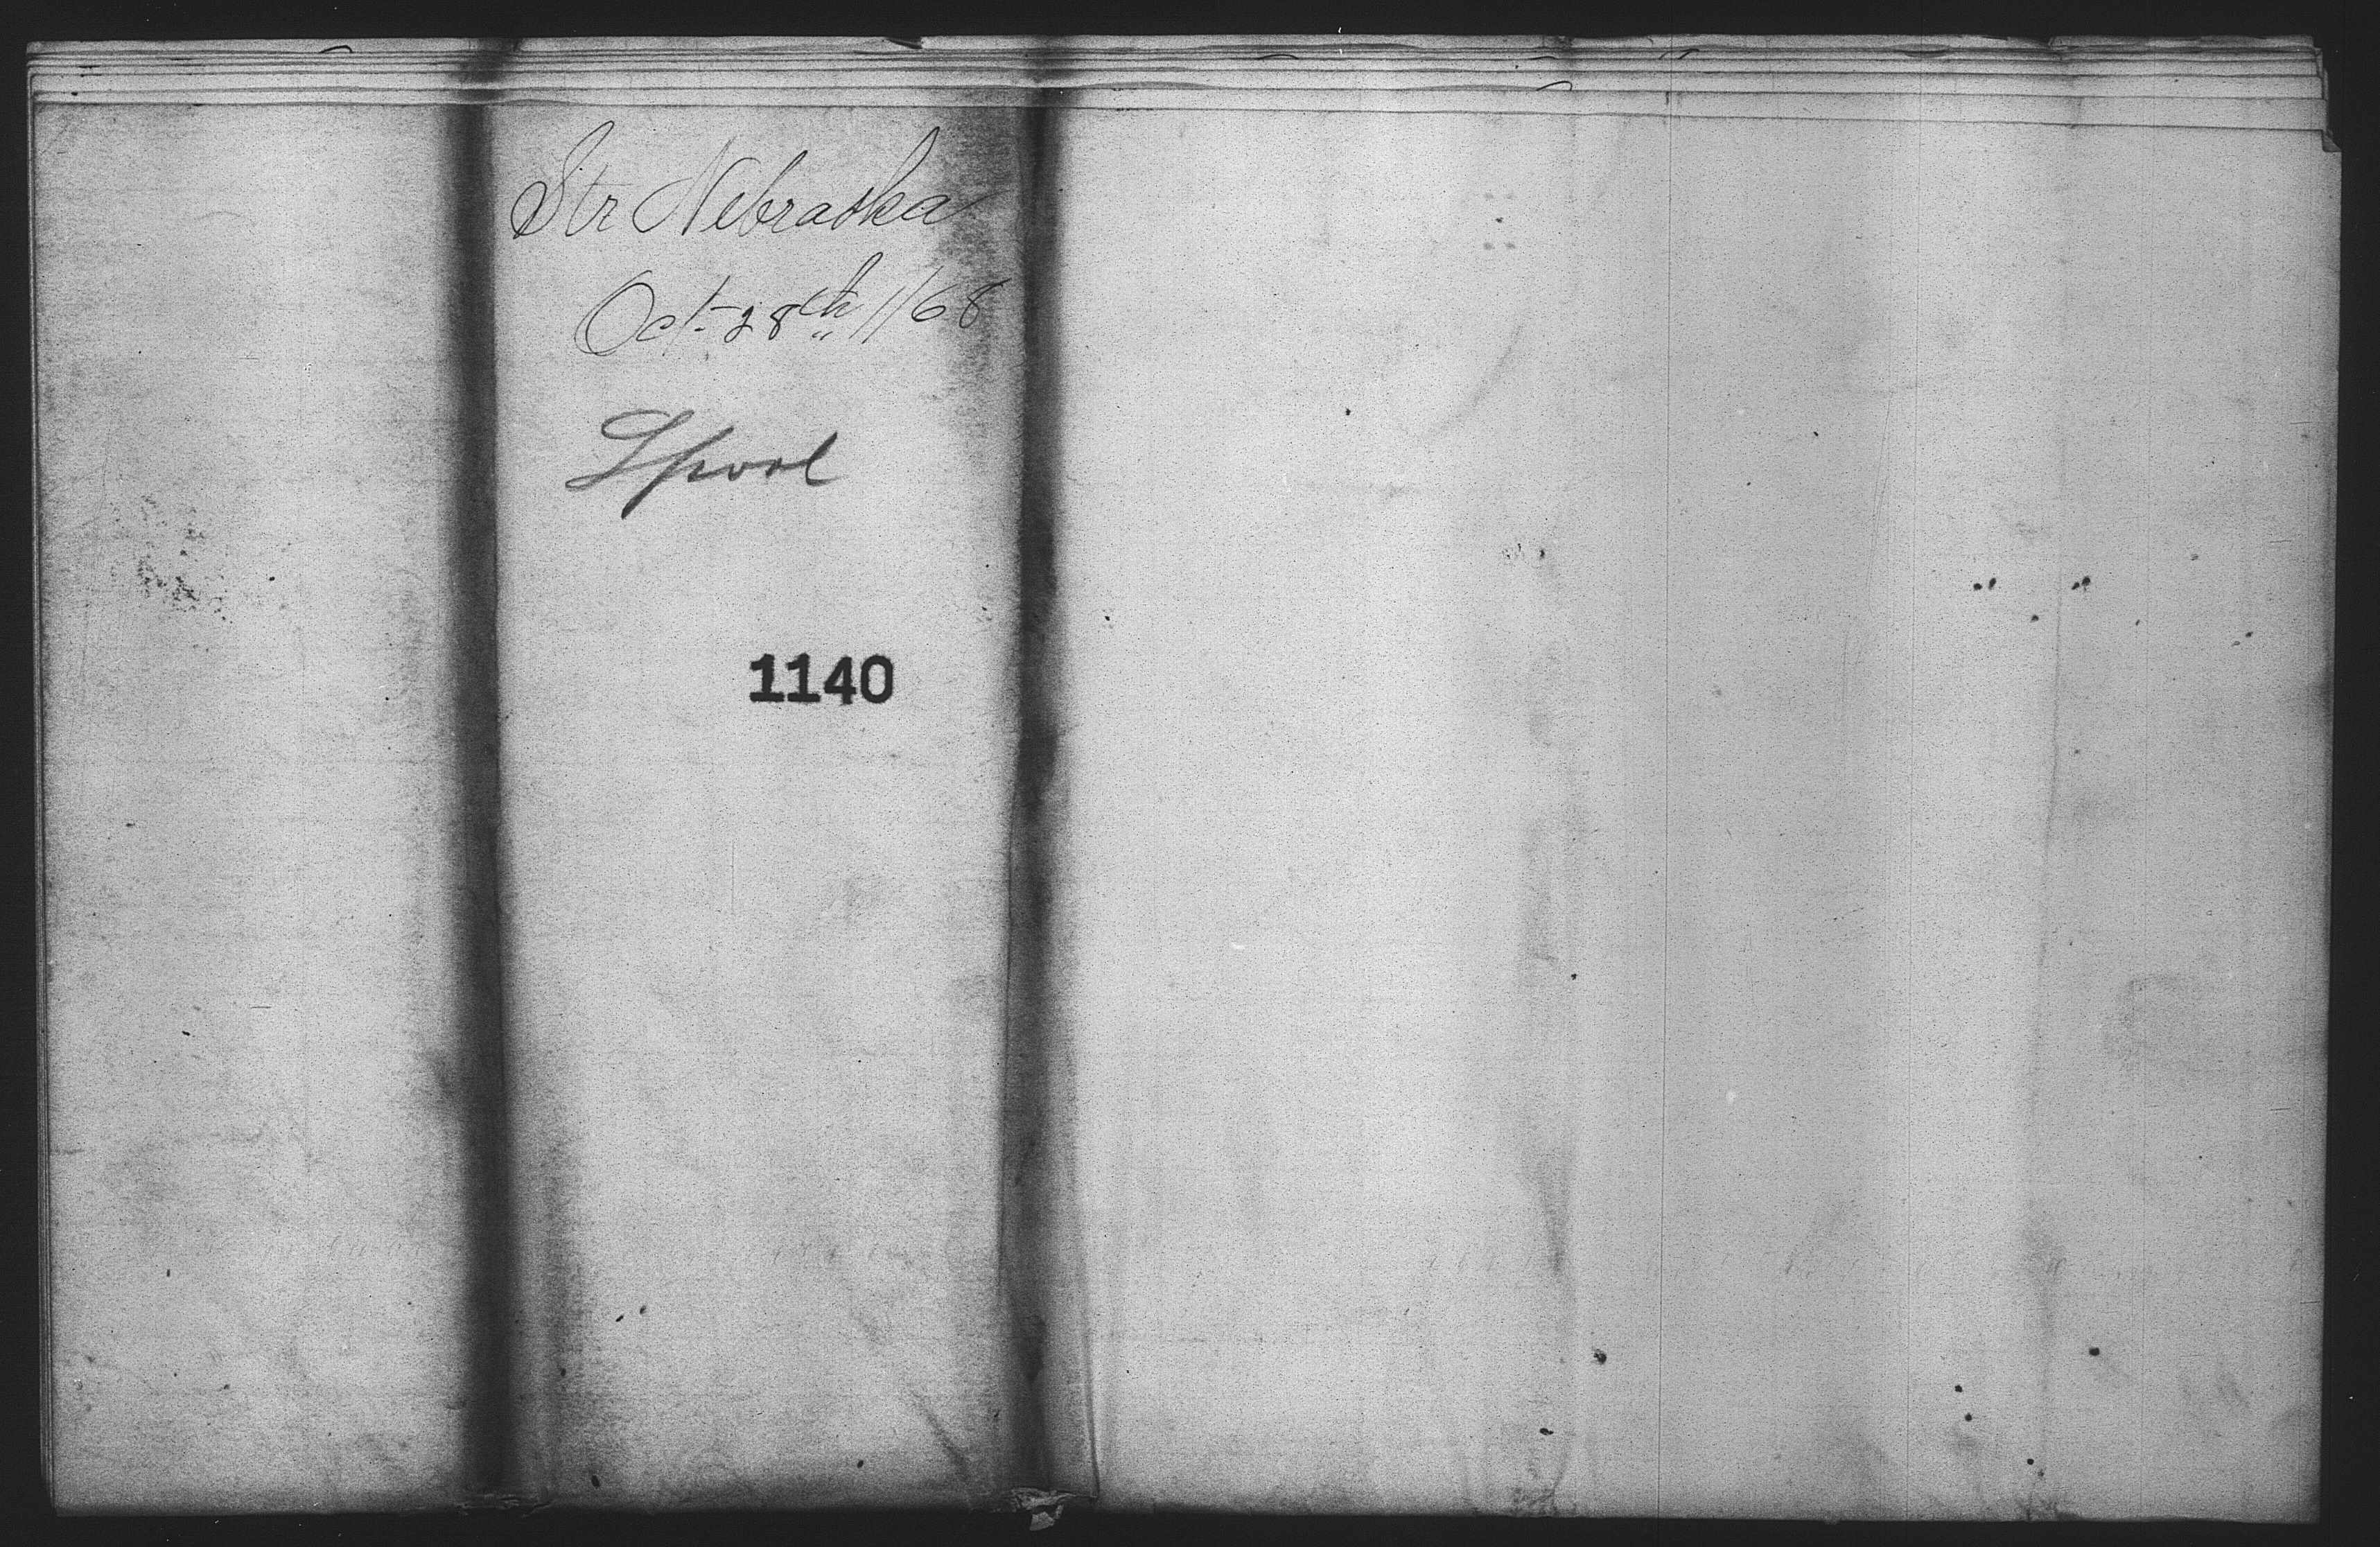 Str Nebraska
Oct- 28th //68
Lpool
1140